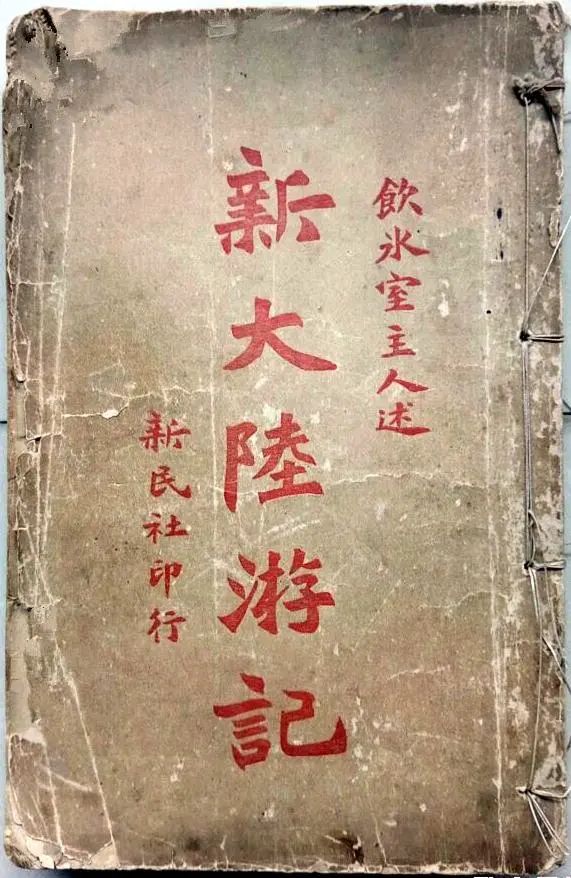 飲氷室主人述
新大陸游記
新民社印行